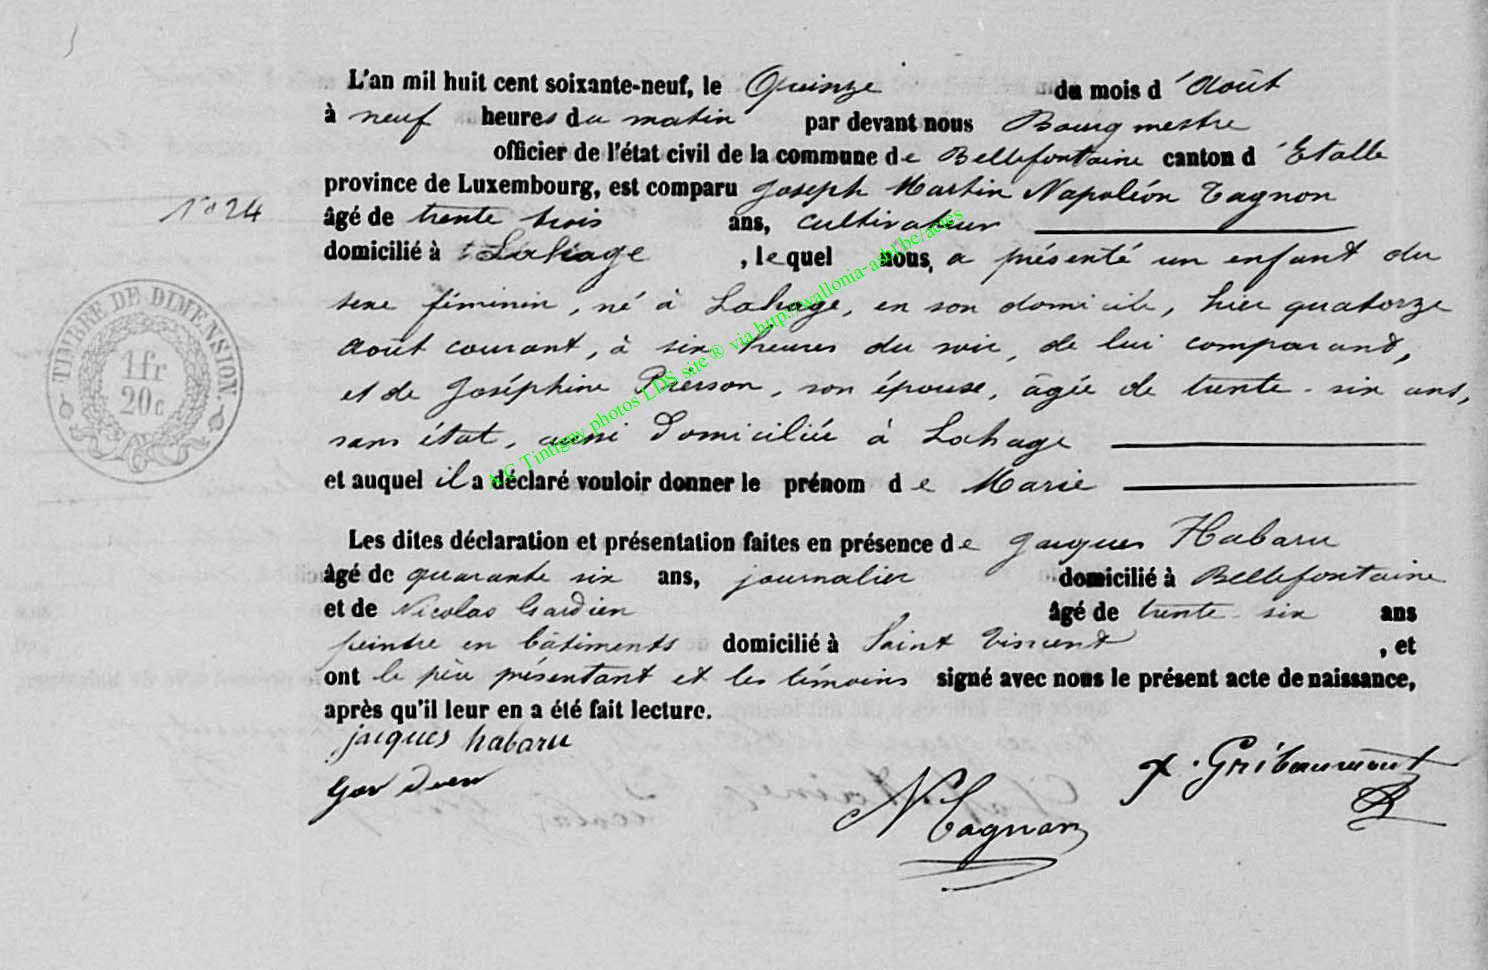 L'an mil huit cent soixante-neuf, le Quinze du mois d'Août
à neuf heures du matin par devant nous Bourgmestre
officier de l'état civil de la commune de Bellefontaine canton d'Etalle
province de Luxembourg, est comparu Joseph Martin Napoléon Tagnon
N° 24
âgé de trente trois ans, cultivateur
domicilié à Lahage, lequel nous, a présenté un enfant du
sexe féminin, né à Lahage, en son domicile, hier quatorze
Août courant, à six heures du soir, de lui comparand,
et de Joséphine Pierson, son épouse, âgée de trente-six ans,
sans état, aussi domiciliée à Lahage
et auquel il a déclaré vouloir donner le prénom de Marie
Les dites déclaration et présentation faites en présence de Jacques Habaru
âgé de quarante six ans, journalier domicilié à Bellefontaine
et de Nicolas Gardien âgé de trente-six ans
peintre en bâtiments domicilié à Saint Vincent, et
ont le père présentant et les témoins signé avec nous le présent acte de naissance,
après qu'il leur en a été fait lecture.
jacques habaru
N Tagnon
Gribaumont
TIMBRE DE DIMENSION.
1fr
20c
A.C Tintigny photos LDS site ® via http://wallonia-asbl.be/acges